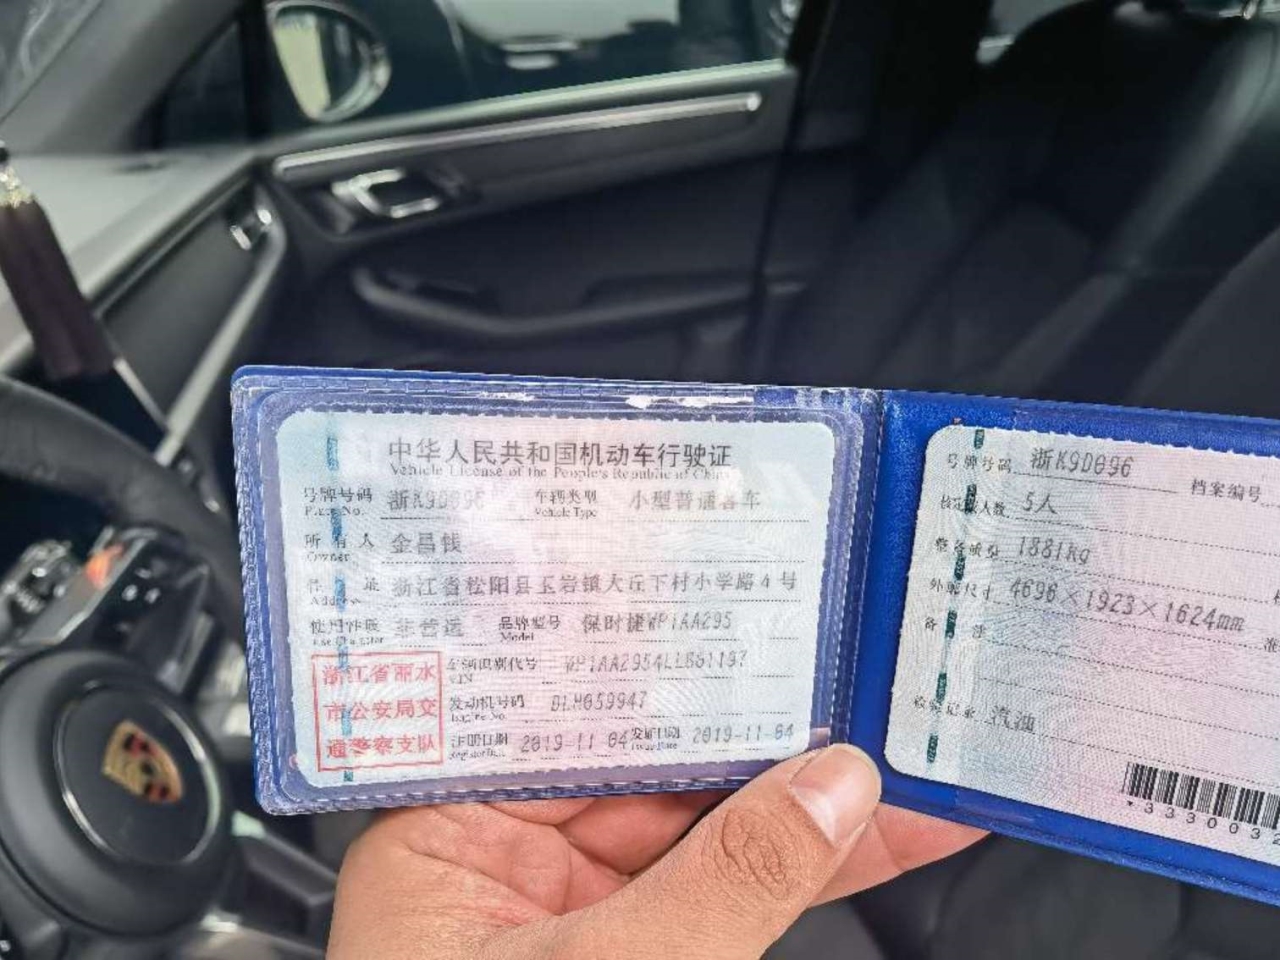 中华人民共和国机动车行驶证
Vehicle License of the People's Republic of China
号牌号码 浙K9D096 车辆类型 小型普通客车
Plate No. Vehicle Type
所有人 金昌钱
Owner
住 址 浙江省松阳县玉岩镇大丘下村小学路4号
Address
使用性质 非营运 品牌型号 保时捷WP1AA295
Use Character Model
浙江省丽水
市公安局交
通警察支队
车辆识别代号
VIN
发动机号码 DLH059947
Engine No.
注册日期 2019-11-04 发证日期 2019-11-04
Register Date Issue Date
号牌号码 浙K9D096 档案编号
核定载人数 5人
整备质量 1881Kg
外廓尺寸 4696×1923×1624mm
备 注
检验记录 汽油
*333003